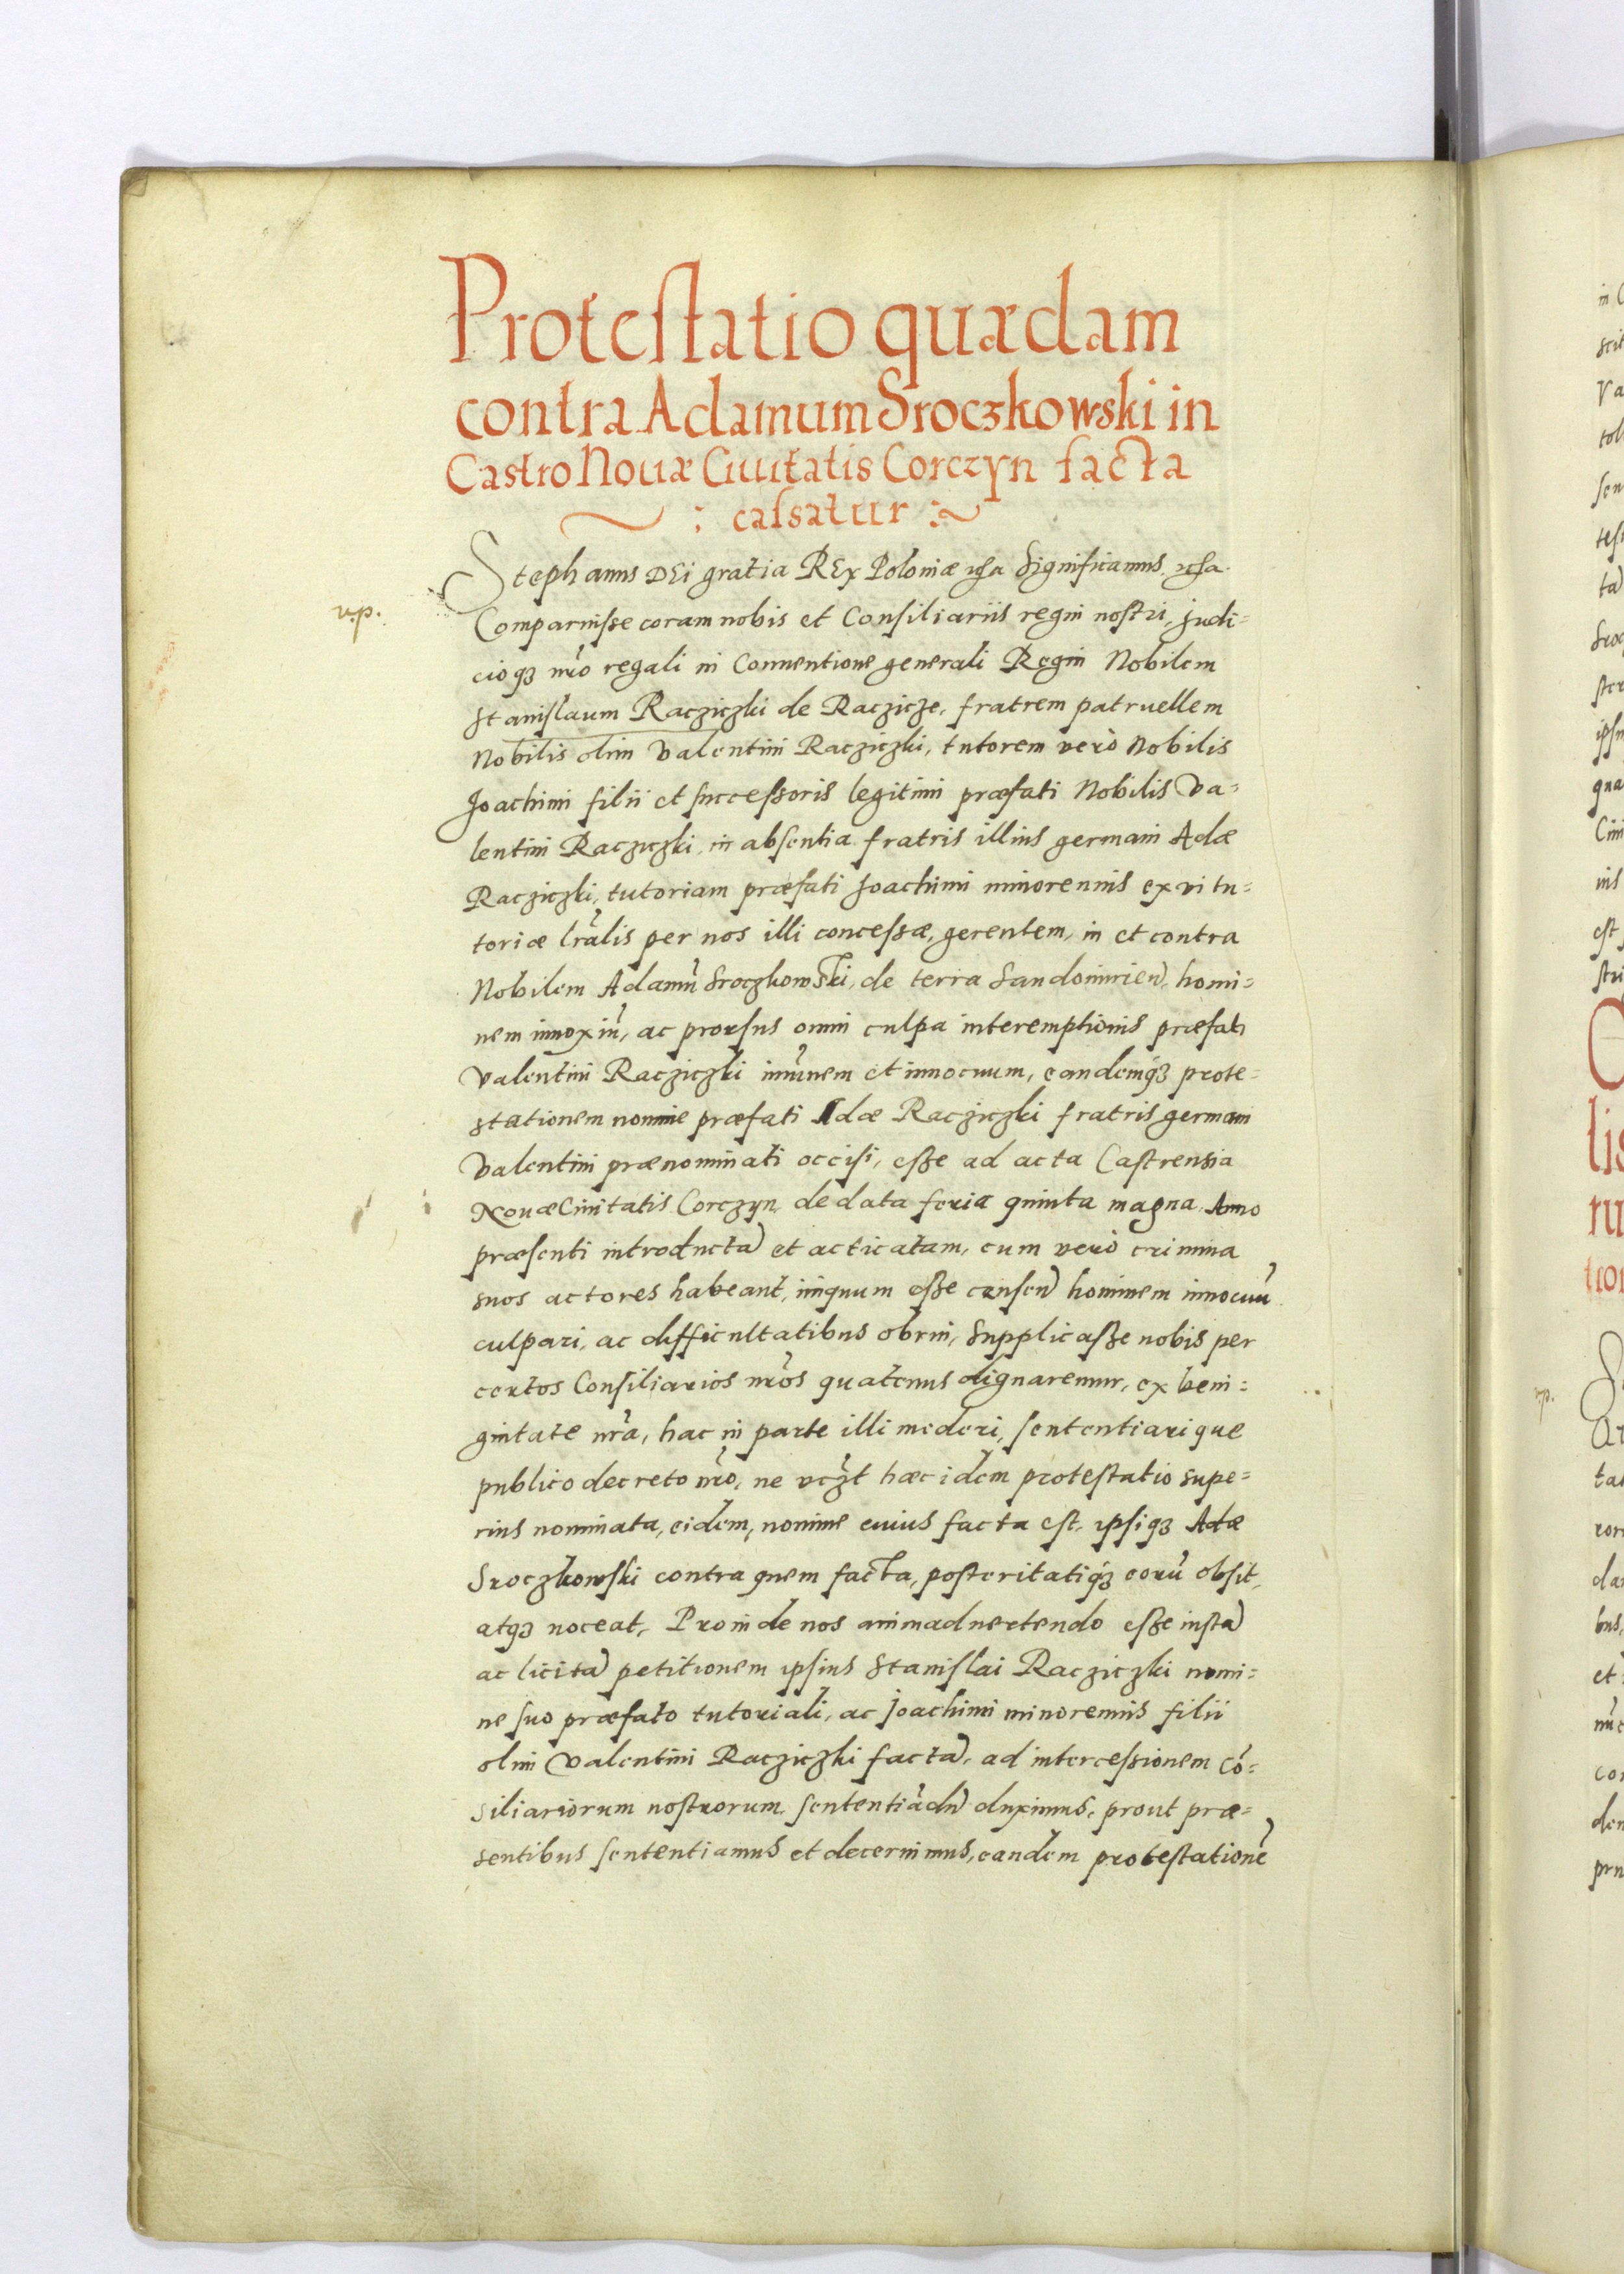 Protestatio quædam
contra Adamum Sroczkowski in
Castro Nouæ Ciuitatis Corczyn facta
: cassatur :
Stephanus DEi gratia REx Poloniæ &ca Significamus, &ca.
vp.
Comparuisse coram nobis et Consiliariis regni nostri, Judi=
cioq3 nr̃o regali in Conuentione generali Regni Nobilem
Stanislaum Racziczki de Raczicze, fratrem patruellem
Nobilis olim Valentini Racziczki, tutorem verò Nobilis
Joachimi filii et successoris legitimi præfati Nobilis Va=
lentini Racziczki, in absentia fratris illius germani Adæ
Racziczki, tutoriam præfati Joachimi minorennis ex vi tu=
toriæ lr̃alis per nos illi concessæ, gerentem, in et contra
Nobilem Adamũ Sroczkowski, de terra Sandomirien̄, homi=
nem innoxiũ, ac prorsus omni culpa interemptionis præfati
Valentini Racziczki imũnem et innocuum, eandemq́3 prote=
stationem nomine præfati Adæ Racziczki fratris germani
Valentini prænominati occisi, esse ad acta Castrensia
Nouæ Ciuitatis Corczyn de data feria quinta magna Anno
præsenti introductã et acticatam, cum verò crimina
suos actores habeant, iniquum esse censen̄ hominem innocuũ
culpari, ac difficultatibus obrui, Supplicasse nobis per
certos Consiliarios nr̃os quatenus dignaremur, ex beni=
gnitate nr̃a, hac in parte illi mederi, sententiarique
publico decreto nr̃o, ne vq̃3t hæc idem protestatio supe=
rius nominata, eidem, nomine cuius facta est, ipsiq3 Adæ
Sroczkowski contra quem facta, posteritatiq́3 eorũ obsit,
atq3 noceat, Proinde nos animaduertendo esse iustã
ac licitã petitionem ipsius Stanislai Racziczki nomi=
ne suo præfato tutoriali, ac Joachimi minorennis filii
olim Valentini Racziczki factã, ad intercessionem Cõ=
siliariorum nostrorum sententiãdū duximus, prout præ=
sentibus sententiamus et decernimus, eandem protestationẽ